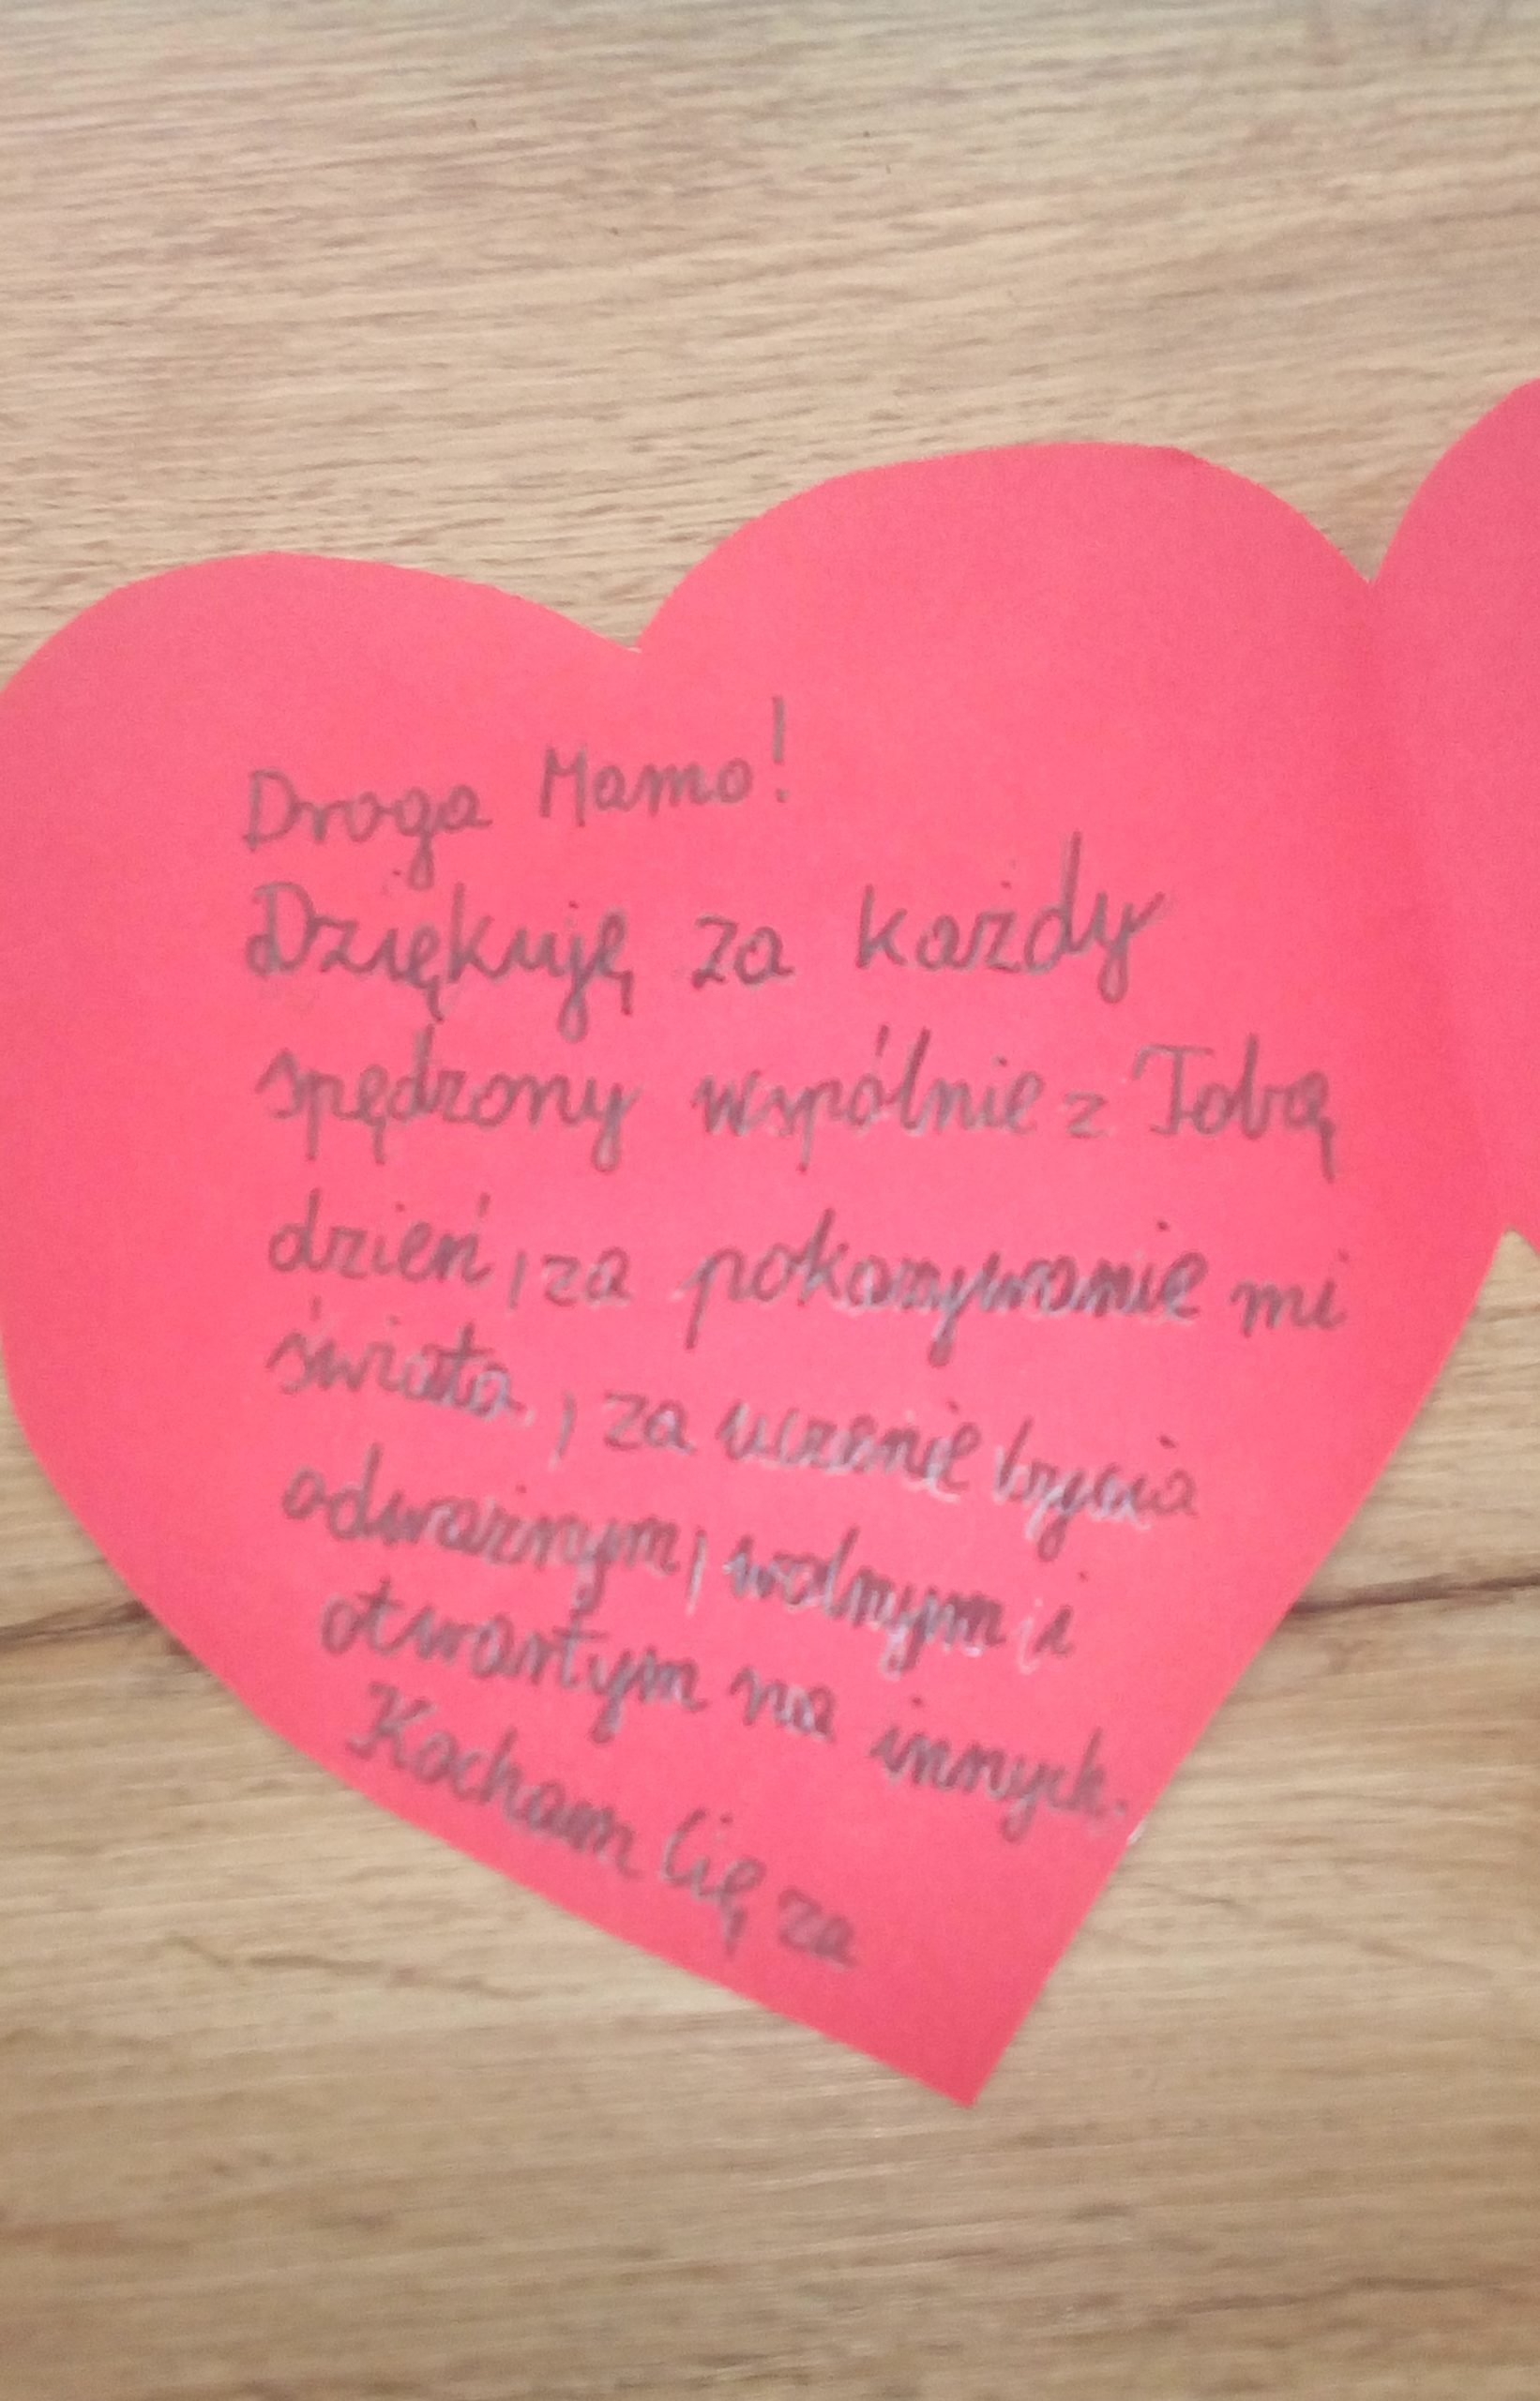 Droga Mamo!
Dziękuję za każdy
spędzony wspólnie z Tobą
dzień, za pokazywanie mi
świata, za uczenie bycia
odważnym, wolnym i
otwartym na innych.
Kocham Cię za